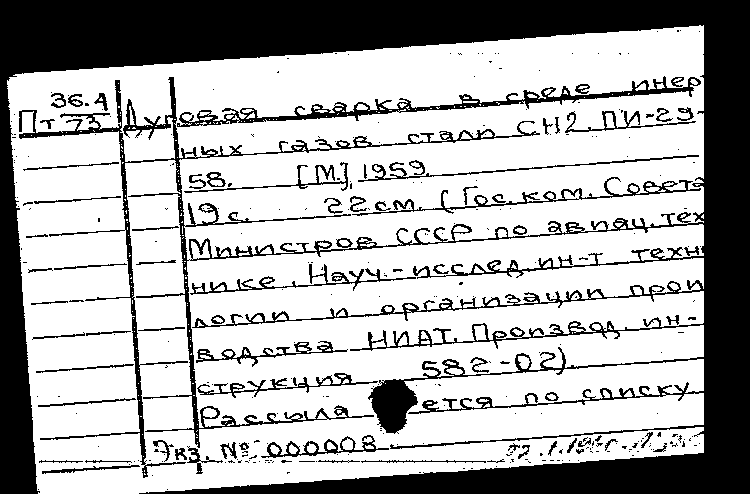 36.4
Пт 73 Дуговая сварка в среде инер
ных газов стали СН2. ПИ-29-
58. [М.], 1959.
19 с. 22 см. (Гос. ком. Совета
Министров СССР по авиац. тех
нике. Науч.-исслед. ин-т техн
логии и организации прои
водства НИАТ. Производ. ин-
струкция 582-02).
Рассыла ется по списку
Экз. № 000008